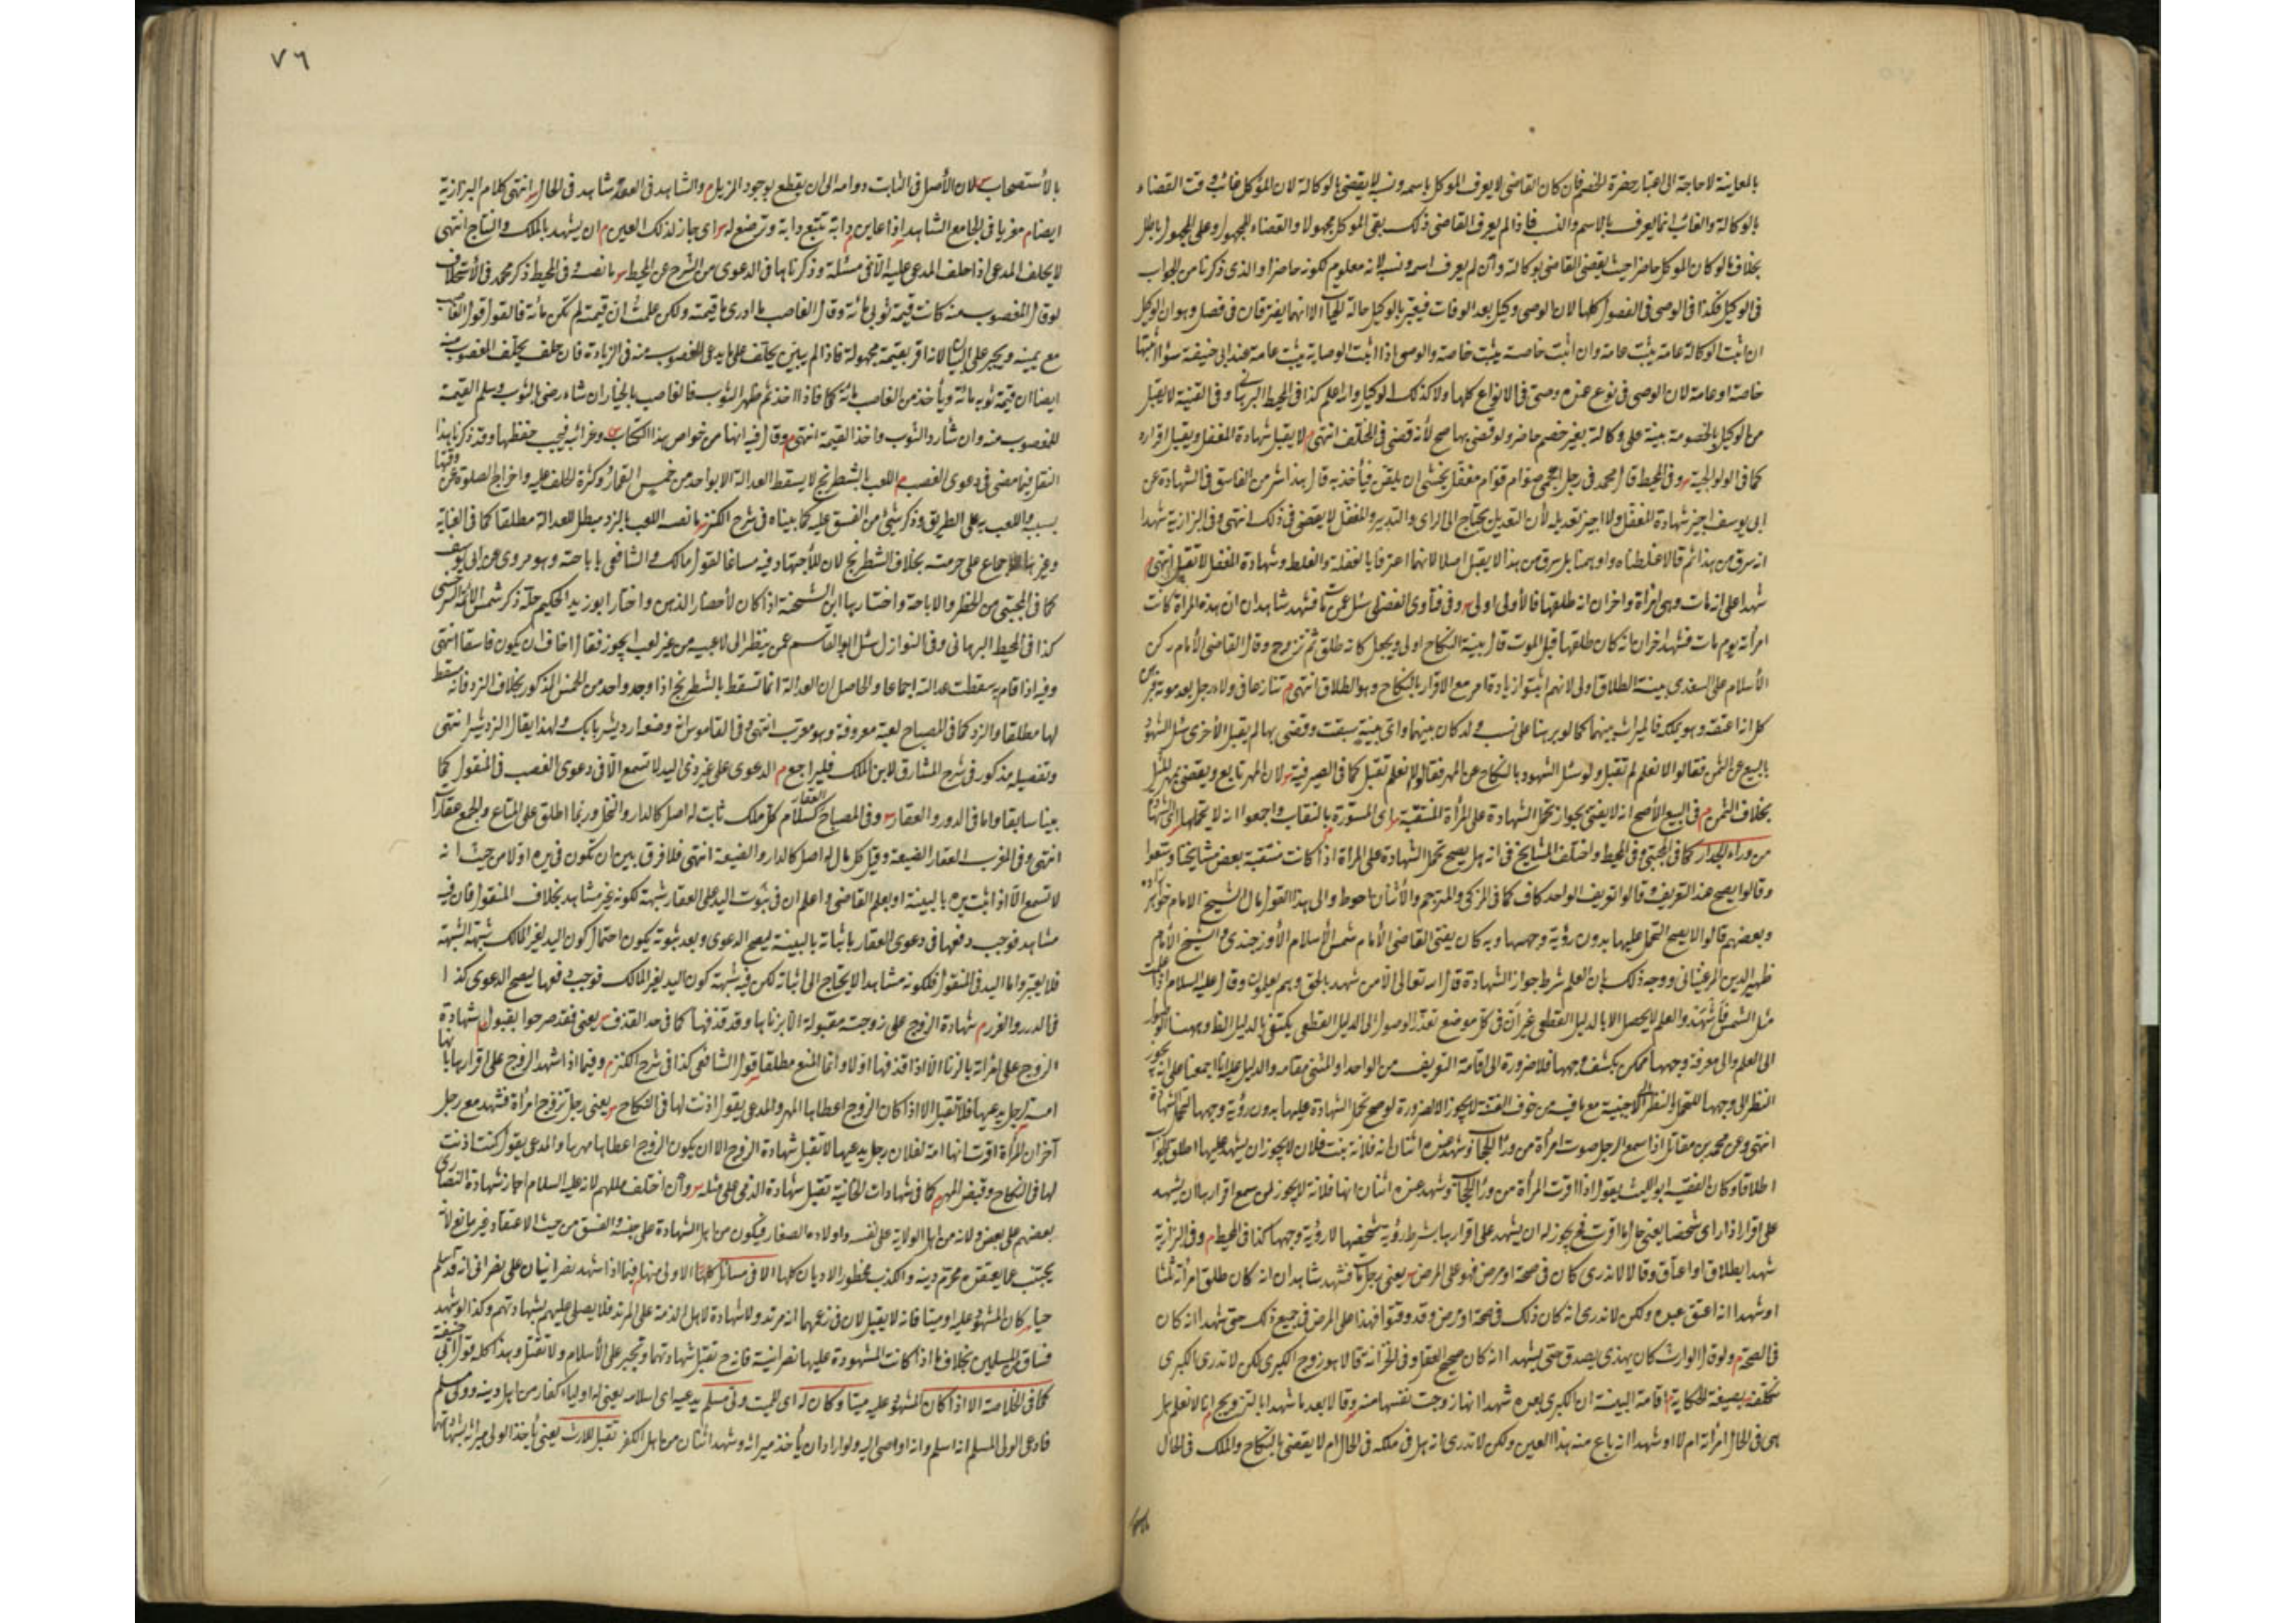 بالمعاينة لا حاجة الى اعتبار حضرة الخصم فان كان القاضى لا يعرف الموكل باسمه ونسبه لا يقضى بالوكالة لان الموكل غائب وقت القضاء
بالوكالة والغائب انما يعرف بالاسم والنسب فاذا لم يعرف القاضى ذلك بقى الموكل مجهولا والقضاء للمجهول وعلى المجهول باطل
بخلاف ما لو كان الموكل حاضرا حيث يقضى القاضى بوكالته وان لم يعرف اسمه ونسبه لانه معلوم لكونه حاضرا والذى ذكرنا من الجواب
فى الوكيل فكذا فى الوصى فى الفصول كلها لان الوصى وكيل بعد الوفات فيعتبر بالوكيل حالة الحياة الا انهما يفترقان فى فصل وهو ان الوكيل
ان اثبت الوكالة عامة يثبت عامة وان اثبت خاصة يثبت خاصة والوصى اذا اثبت الوصاية يثبت عامة عند ابى حنيفة سواء اثبتها
خاصة او عامة لان الوصى فى نوع عنده وصى فى الانواع كلها ولا كذلك الوكيل والله اعلم كذا فى المحيط البرهانى وفى القنية لا يقبل
من الوكيل بالخصومة بينة على وكالة بغير خصم حاضر ولو قضى بها صح لأنه قضى فى المختلف انتهى م لا يقبل شهادة المغفل ويقبل اقراره
كما فى الولوالجية وفى المحيط قال محمد فى رجل اعجمى صوام قوام مغفل يخشى ان يلقن فيأخذ به قال هذا شر من الفاسق فى الشهادة عن
ابى يوسف اجيز شهادة المغفل ولا اجيز تعديله لأن التعديل يحتاج الى الراى والتدبير والمغفل لا يقضى فى ذلك انتهى وفى البزازية شهدا
انه سرق من هذا ثم قالا غلطنا او اوهمنا بل سرق من هذا لا يقبل اصلا لانهما اعترفا بالغفلة والغلط وشهادة المغفل لا تقبل انتهى م
شهدا على انه مات وهى امرأة واخران انه طلقها فالأولى اولى وفى فتاوى الفضلى سئل عمن مات فشهد شاهدان ان هذه المرأة كانت
امرأته يوم مات فشهد اخران انه كان طلقها قبل الموت قال بينة النكاح اولى ويجعل كانه طلق ثم تزوج وقال القاضى الأمام ركن
الأسلام على السغدى بينة الطلاق اولى لانهم اثبتوا زيادة امر مع الاقرار بالنكاح وهو الطلاق انتهى م تنازعا فى ولاء رجل بعد موته فبرهن
كل انه اعتقه وهو يملكه فالميراث بينهما كما لو برهنا على نسب ولد كان بينهما واى بينة سبقت وقضى بها لم يقبل الأخرى سئل الشهود
بالبيع عن الثمن فقالوا لا نعلم لم تقبل ولو سئل الشهود بالنكاح عن المهر فقالوا لا نعلم تقبل كما فى الصيرفية لان المهر تابع ويقضى بمهر المثل
بخلاف الثمن م فى البيع الأصح انه لا يفتى بجواز تحمل الشهادة على المرأة المنتقبة اى المستورة بالنقاب واجمعوا انه لا يحتملها
من وراء الجدار كما فى المجتبى وفى المحيط واختلف المشايخ فى انه هل يصح تحمل الشهادة على المرأة اذا كانت منتقبة بعض مشايخنا وسعوا
وقالوا يصح عند التعريف وقالوا تعريف الواحد كاف كما فى المزكى والمترجم والأثنان احوط والى هذا القول مال الشيخ الامام خواهر زاده
وبعضهم قالوا لا يصح التحمل عليها بدون رؤية وجهها وبه كان يفتى القاضى الأمام شمس الأسلام الأوزجندى والشيخ الأمام
ظهير الدين المرغينانى ووجه ذلك بان العلم شرط جواز الشهادة قال الله تعالى الا من شهد بالحق وهم يعلمون وقال عليه السلام اذا علمت
مثل الشمس فاشهد والعلم لا يحصل الا بالدليل القطعى غير أن فى كل موضع تعذر الوصول الى الدليل القطعى يكتفى بالدليل الظاهر وههنا الوصول
الى العلم والى معرفة وجهها ممكن بكشف وجهها فلا ضرورة الى اقامة التعريف من الواحد او المثنى مقامه والدليل عليه انا اجمعنا على انه يجوز
النظر الى وجهها للتحمل والنظر الى الاجنبية مع ما فيه من خوف الفتنة لا يجوز الا لضرورة لو صح تحمل الشهادة عليها بدون رؤية وجهها
انتهى وعن محمد بن مقاتل اذا سمع الرجل صوت امرأة من وراء الحجاب وشهد عنده اثنان انه فلانة بنت فلان لا يجوز ان يشهد عليها اطلق الجواب
اطلاقا وكان الفقيه ابو الليث يقول اذا اقرت المرأة من وراء الحجاب وشهد عنده اثنان انها فلانة لا يجوز لمن سمع اقرارها ان يشهد
على اقرارها الا اذا راى شخصها يعنى حال ما اقرت فح يجوز له ان يشهد على اقرارها بشرط رؤية شخصها لا رؤية وجهها كذا فى المحيط م وفى البزازية
شهدا بطلاق او اعتاق وقالا لا ندرى كان فى صحة او مرض فهو على المرض يعنى رجل مات فشهد شاهدان انه كان طلق امرأته ثلثا
او شهدا انه اعتق عبده ولكن لا ندرى انه كان ذلك فى صحة او مرض وقد وقتوا فهذا على المرض فى جميع ذلك حتى شهدا انه كان
فى الصحة م ولو قال الوارث كان يهذى يصدق حتى يشهدا انه كان صحيح العقل وفى الخزانة قالا هو زوج الكبرى لكن لا ندرى الكبرى
نكلفه بصيغة الحكاية اقامة البينة ان الكبرى هذه شهدا انها زوجت نفسها منه وقالا بعد ما شهدا بالتزويج انا لا نعلم هل
هى فى الحال امرأته ام لا او شهدا انه باع منه هذا العين ولكن لا ندرى انه هل فى ملكه فى الحال ام لا يقضى بالنكاح والملك فى الحال
٧٦
بالأستصحاب لان الأصل فى الثابت دوامه الى ان يقطع بوجود المزيل والشاهد فى العقد شاهد فى الحال انتهى كلام البزازية
ايضا م معزيا فى الجامع الشاهد اذا عاين دابة تتبع دابة وترضع له اى جاز لذلك العين ان يشهد بالملك والنتاج انتهى
لا يحلف المدعى اذا حلف المدعى عليه الا فى مسئلة وذكرناها فى الدعوى من الشرح عن المحيط ما نصه وفى المحيط ذكر محمد فى الأستحلاف
لو قال المغصوب منه كانت قيمة ثوبى مائة وقال الغاصب ما ادرى ما قيمته ولكن علمت ان قيمته لم تكن مائة فالقول قول الغاصب
مع يمينه ويجبر على البيان لانه اقر بقيمة مجهولة فاذا لم يبين يحلف على ما يدعى المغصوب منه فى الزيادة فان حلف يحلف المغصوب منه
ايضا ان قيمة ثوبه مائة ويأخذ من الغاصب مائة كما فاذا اخذ ثم ظهر الثوب فالغاصب بالخيار ان شاء رضى بالثوب وسلم القيمة
للمغصوب منه وان شاء رد الثوب واخذ القيمة انتهى وقال فيه انها من خواص هذا الكتاب وغرائبه فيجب حفظها وقد ذكرنا هذا
النقل فيما مضى فى دعوى الغصب م اللعب بالشطرنج لا يسقط العدالة الا بواحد من خمس القمار وكثرة الحلف عليه واخراج الصلوة عن وقتها
بسببه واللعب به على الطريق وذكر شئ من الفسق عليه كما بيناه فى شرح الكنز ما نصه اللعب بالنرد مبطل للعدالة مطلقا كما فى العناية
وغيرها للاجماع على حرمته بخلاف الشطرنج لان للأجتهاد فيه مساغا لقول مالك والشافعى باباحته وهو مروى عن ابى يوسف
كما فى المجتبى من الحظر والاباحة واختارها ابن الشحنة اذا كان لأحضار الذهن واختار ابو زيد الحكيم حله ذكر شمس الائمة السرخسى
كذا فى المحيط البرهانى وفى النوازل سئل ابو القاسم عمن ينظر الى لاعبيه من غير لعب ايجوز فقال اخاف ان يكون فاسقا انتهى
وفيه اذا قام به سقطت عدالته اجماعا والحاصل ان العدالة انما تسقط بالشطرنج اذا وجد واحد من الخمس المذكور بخلاف النرد فانه مسقط
لها مطلقا والنرد كما فى المصباح لعبة معروفة وهو معرب انتهى وفى القاموس انه وضعه اردشير بابك ولهذا يقال النردشير انتهى
وتفصيله مذكور فى شرح المشارق لابن الملك فليراجع م الدعوى على غير ذى اليد لا تسمع الا فى دعوى الغصب فى المنقول كما
بينا سابقا واما فى الدور والعقار وفى المصباح العقار كسلام كل ملك ثابت له اصل كالدار والنخل وربما اطلق على المتاع والجمع عقارات
انتهى وفى المغرب العقار الضيعة وقيل كل مال له اصل كالدار والضيعة انتهى فلا فرق بين ان تكون فى يده او لا من حيث انه
لا تسمع الا اذا اثبت يده بالبينة او بعلم القاضى واعلم ان فى ثبوت اليد على العقار شبهة لكونه غير مشاهد بخلاف المنقول فان فيه
مشاهد فوجب دفعها فى دعوى العقار باثباته بالبينة ليصح الدعوى وبعد ثبوته يكون احتمال كون اليد لغير المالك شبهة الشبهة
فلا يعتبر واما اليد فى المنقول فلكونه مشاهدا لا يحتاج الى اثباته لكن فيه شبهة كون اليد لغير المالك فوجب دفعها ليصح الدعوى كذا
فى الدرر والغرر م شهادة الزوج على زوجته مقبولة الا بزناها وقد قذفها كما فى حد القذف يعنى فقد صرحوا بقبول شهادة
الزوج على امرأته بالزنا الا اذا قذفها اولا وانما المنع مطلقا قول الشافعى كذا فى شرح الكنز م وفيما اذا شهد الزوج على اقرارها بانها
امة لرجل يدعيها فلا تقبل الا اذا كان الزوج اعطاها المهر والمدعى يقول اذنت لها فى النكاح يعنى رجل تزوج امرأة فشهد مع رجل
آخر ان المرأة اقرت انها امة لفلان رجل يدعيها لا تقبل شهادة الزوج الا ان يكون الزوج اعطاها مهرها والمدعى يقول كنت اذنت
لها فى النكاح وقبض المهر كما فى شهادات الخانية تقبل شهادة الذمى على مثله وان اختلف مللهم لانه عليه السلام اجاز شهادة النصارى
بعضهم على بعض ولانه من اهل الولاية على نفسه واولاده الصغار فيكون من اهل الشهادة على جنسه والفسق من حيث الاعتقاد غير مانع لأنه
يجتنب عما يعتقده محرم دينه والكذب محظور الاديان كلها الا فى مسائل الاولى منها فيما اذا شهد نصرانيان على نصرانى انه قد اسلم
حيا كان المشهود عليه او ميتا فانه لا يقبل لان فى زعمهما انه مرتد ولا شهادة لاهل الذمة على المرتد فلا يصلى عليهم بشهادتهم وكذا لو شهد
فساق المسلمين بخلاف ما اذا كانت المشهودة عليها نصرانية فانه ح تقبل شهادتهما وتجبر على الأسلام ولا تقتل وهذا كله قول ابى حنيفة
كما فى الخلاصة الا اذا كان المشهود عليه ميتا وكان له اى للميت ولى مسلم يدعيه اى اسلامه يعنى له اولياء كفار من اهل دينه وولى مسلم
فادعى الولى المسلم انه اسلم وانه اوصى اليه ولو اراد ان يأخذ ميراثه وشهد اثنان من اهل الكفر تقبل للارث يعنى يأخذ الولى ميراثه بشهادتهما